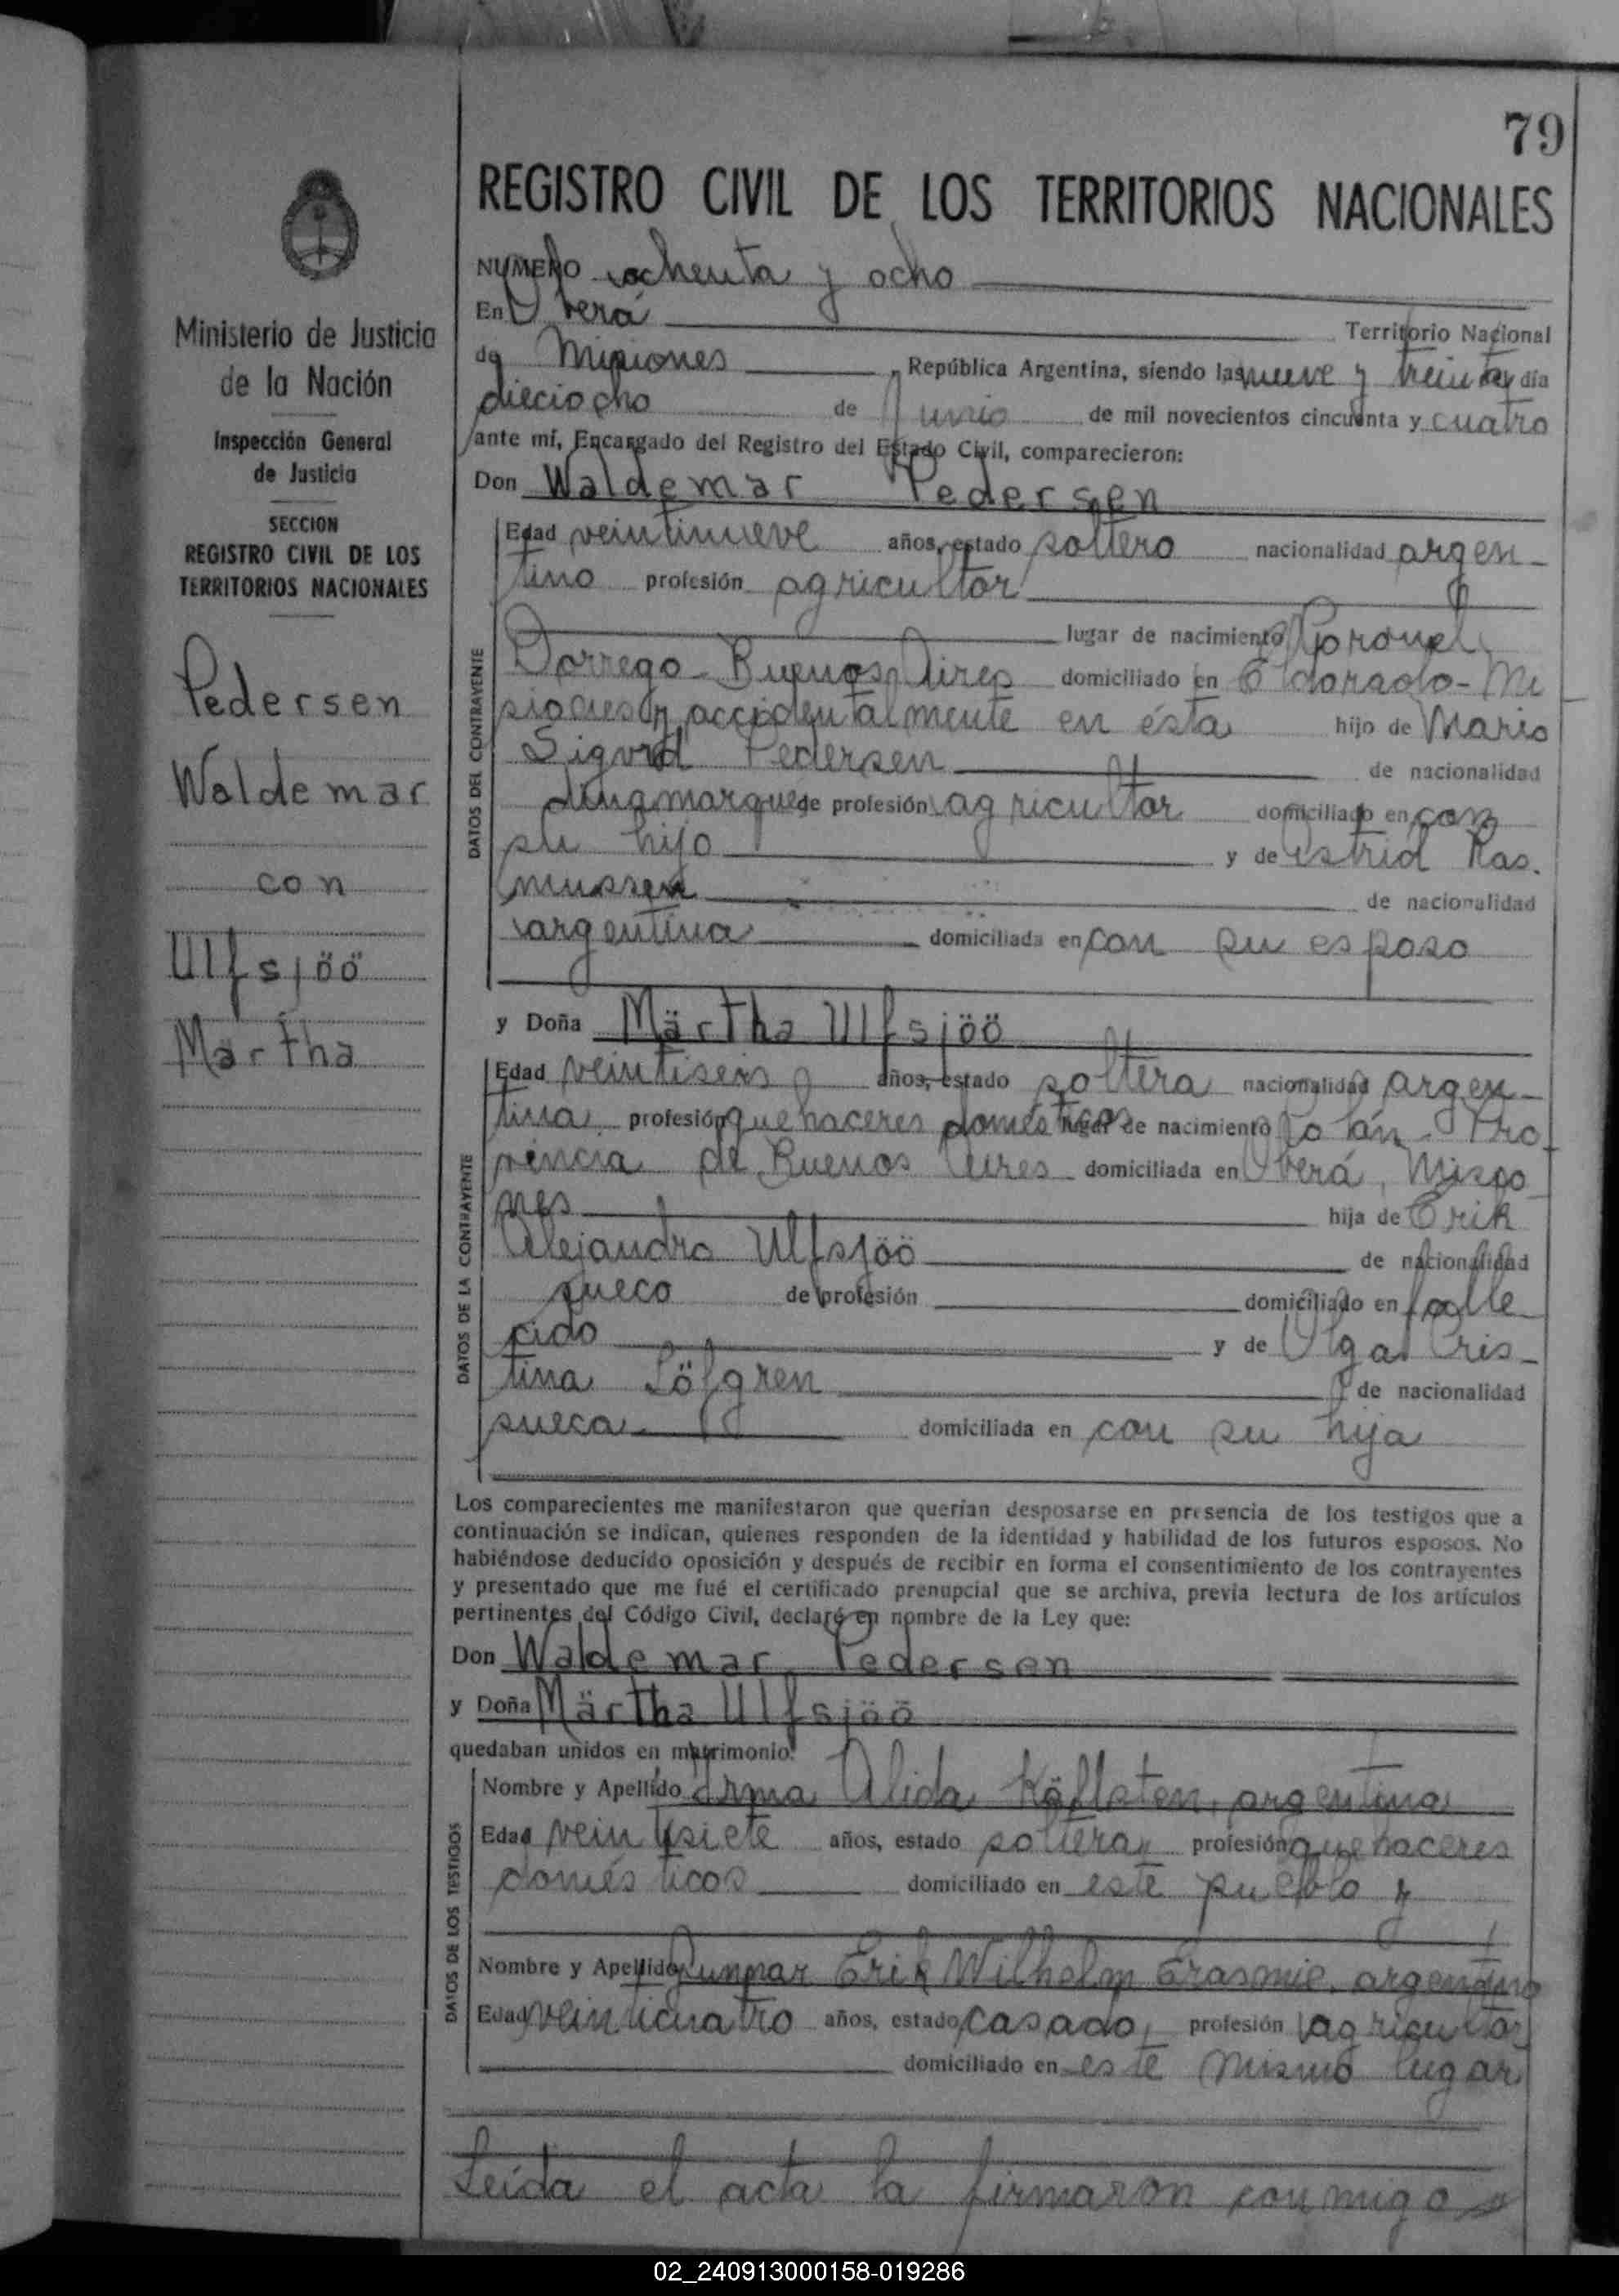 79
REGISTRO CIVIL DE LOS TERRITORIOS NACIONALES
Ministerio de Justicia
de la Nación
Inspección General
de Justicia
SECCION
REGISTRO CIVIL DE LOS
TERRITORIOS NACIONALES
Pedersen
Waldemar
con
Ulfsjöö
Martha
NUMERO ochenta y ocho
En Oberá Territorio Nacional
de Misiones, República Argentina, siendo las nueve y treinta, día
dieciocho de Junio de mil novecientos cincuenta y cuatro
ante mí, Encargado del Registro del Estado Civil, comparecieron:
Don Waldemar Pedersen
DATOS DEL CONTRAYENTE
Edad veintinueve años, estado soltero nacionalidad argen-
tino profesión agricultor
lugar de nacimiento Coronel
Dorrego - Buenos Aires domiciliado en Eldorado - Mi
siones y accidentalmente en ésta hijo de Mario
Sigvrd Pedersen de nacionalidad
dinamarques de profesión agricultor domiciliado en con
su hijo y de Estrid Ras.
mussen de nacionalidad
argentina domiciliada en con su esposo
y Doña Märtha Ulfsjöö
DATOS DE LA CONTRAYENTE
Edad veintiseis años, estado soltera nacionalidad argen-
tina profesión quehaceres domésticos lugar de nacimiento Pro-
vincia de Buenos Aires domiciliada en Oberá, Misio
nes hija de Erik
Alejandro Ulfsjöö de nacionalidad
sueco de profesión domiciliado en falle
cido y de Olga Cris-
tina Löfgren de nacionalidad
sueca domiciliada en con su hija
Los comparecientes me manifestaron que querían desposarse en presencia de los testigos que a
continuación se indican, quienes responden de la identidad y habilidad de los futuros esposos. No
habiéndose deducido oposición y después de recibir en forma el consentimiento de los contrayentes
y presentado que me fué el certificado prenupcial que se archiva, previa lectura de los artículos
pertinentes del Código Civil, declaré en nombre de la Ley que:
Don Waldemar Pedersen
y Doña Märtha Ulfsjöö
quedaban unidos en matrimonio.
DATOS DE LOS TESTIGOS
Nombre y Apellido Irma Alida Källsten, argentina
Edad veintisiete años, estado soltera, profesión quehaceres
domésticos domiciliado en este pueblo y
Nombre y Apellido Gunnar Erik Wilhelm Erasmie, argentino
Edad veinticuatro años, estado casado, profesión agricultor
domiciliado en este mismo lugar
Leída el acta la firmaron conmigo
02_240913000158-019286